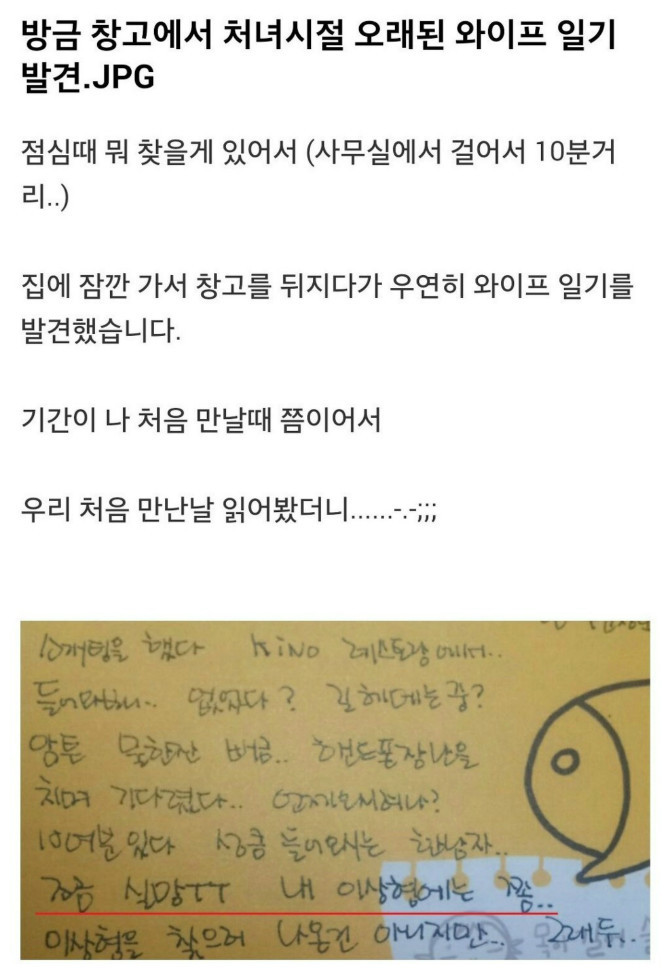 방금 창고에서 처녀시절 오래된 와이프 일기
발견.JPG
점심때 뭐 찾을게 있어서 (사무실에서 걸어서 10분거
리..)
집에 잠깐 가서 창고를 뒤지다가 우연히 와이프 일기를
발견했습니다.
기간이 나 처음 만날때 쯤이어서
우리 처음 만난날 읽어봤더니......-.-;;;
소개팅을 했다 KiNO 레스토랑에서..
들어와보니.. 없었다? 길헤메는중?
암튼 물한잔 버금.. 핸드폰장난을
치며 기다렸다.. 언제오시려나?
10여분 있다 성큼 들어오시는 한남자..
조금 실망TT 내 이상형에는 쫌..
이상형을 찾으러 나온건 아니지만.. 그래두..